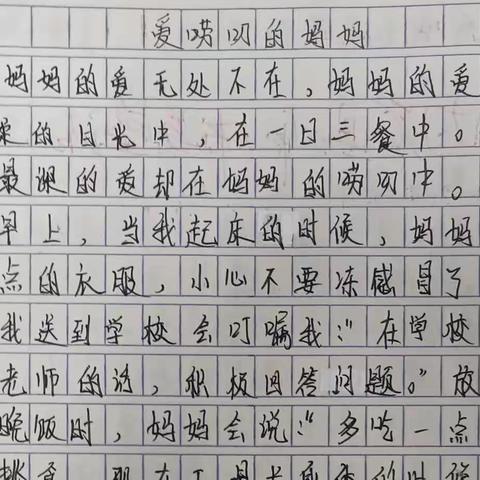 爱唠叨的妈妈
妈妈的爱无处不在，妈妈的爱
柔的目光中，在一日三餐中。
最深的爱却在妈妈的唠叨中。
早上，当我起床的时候，妈妈
点的衣服，小心不要冻感冒了
我送到学校会叮嘱我：“在学校
老师的话，积极回答问题。”放
晚饭时，妈妈会说：“多吃一点
挑食